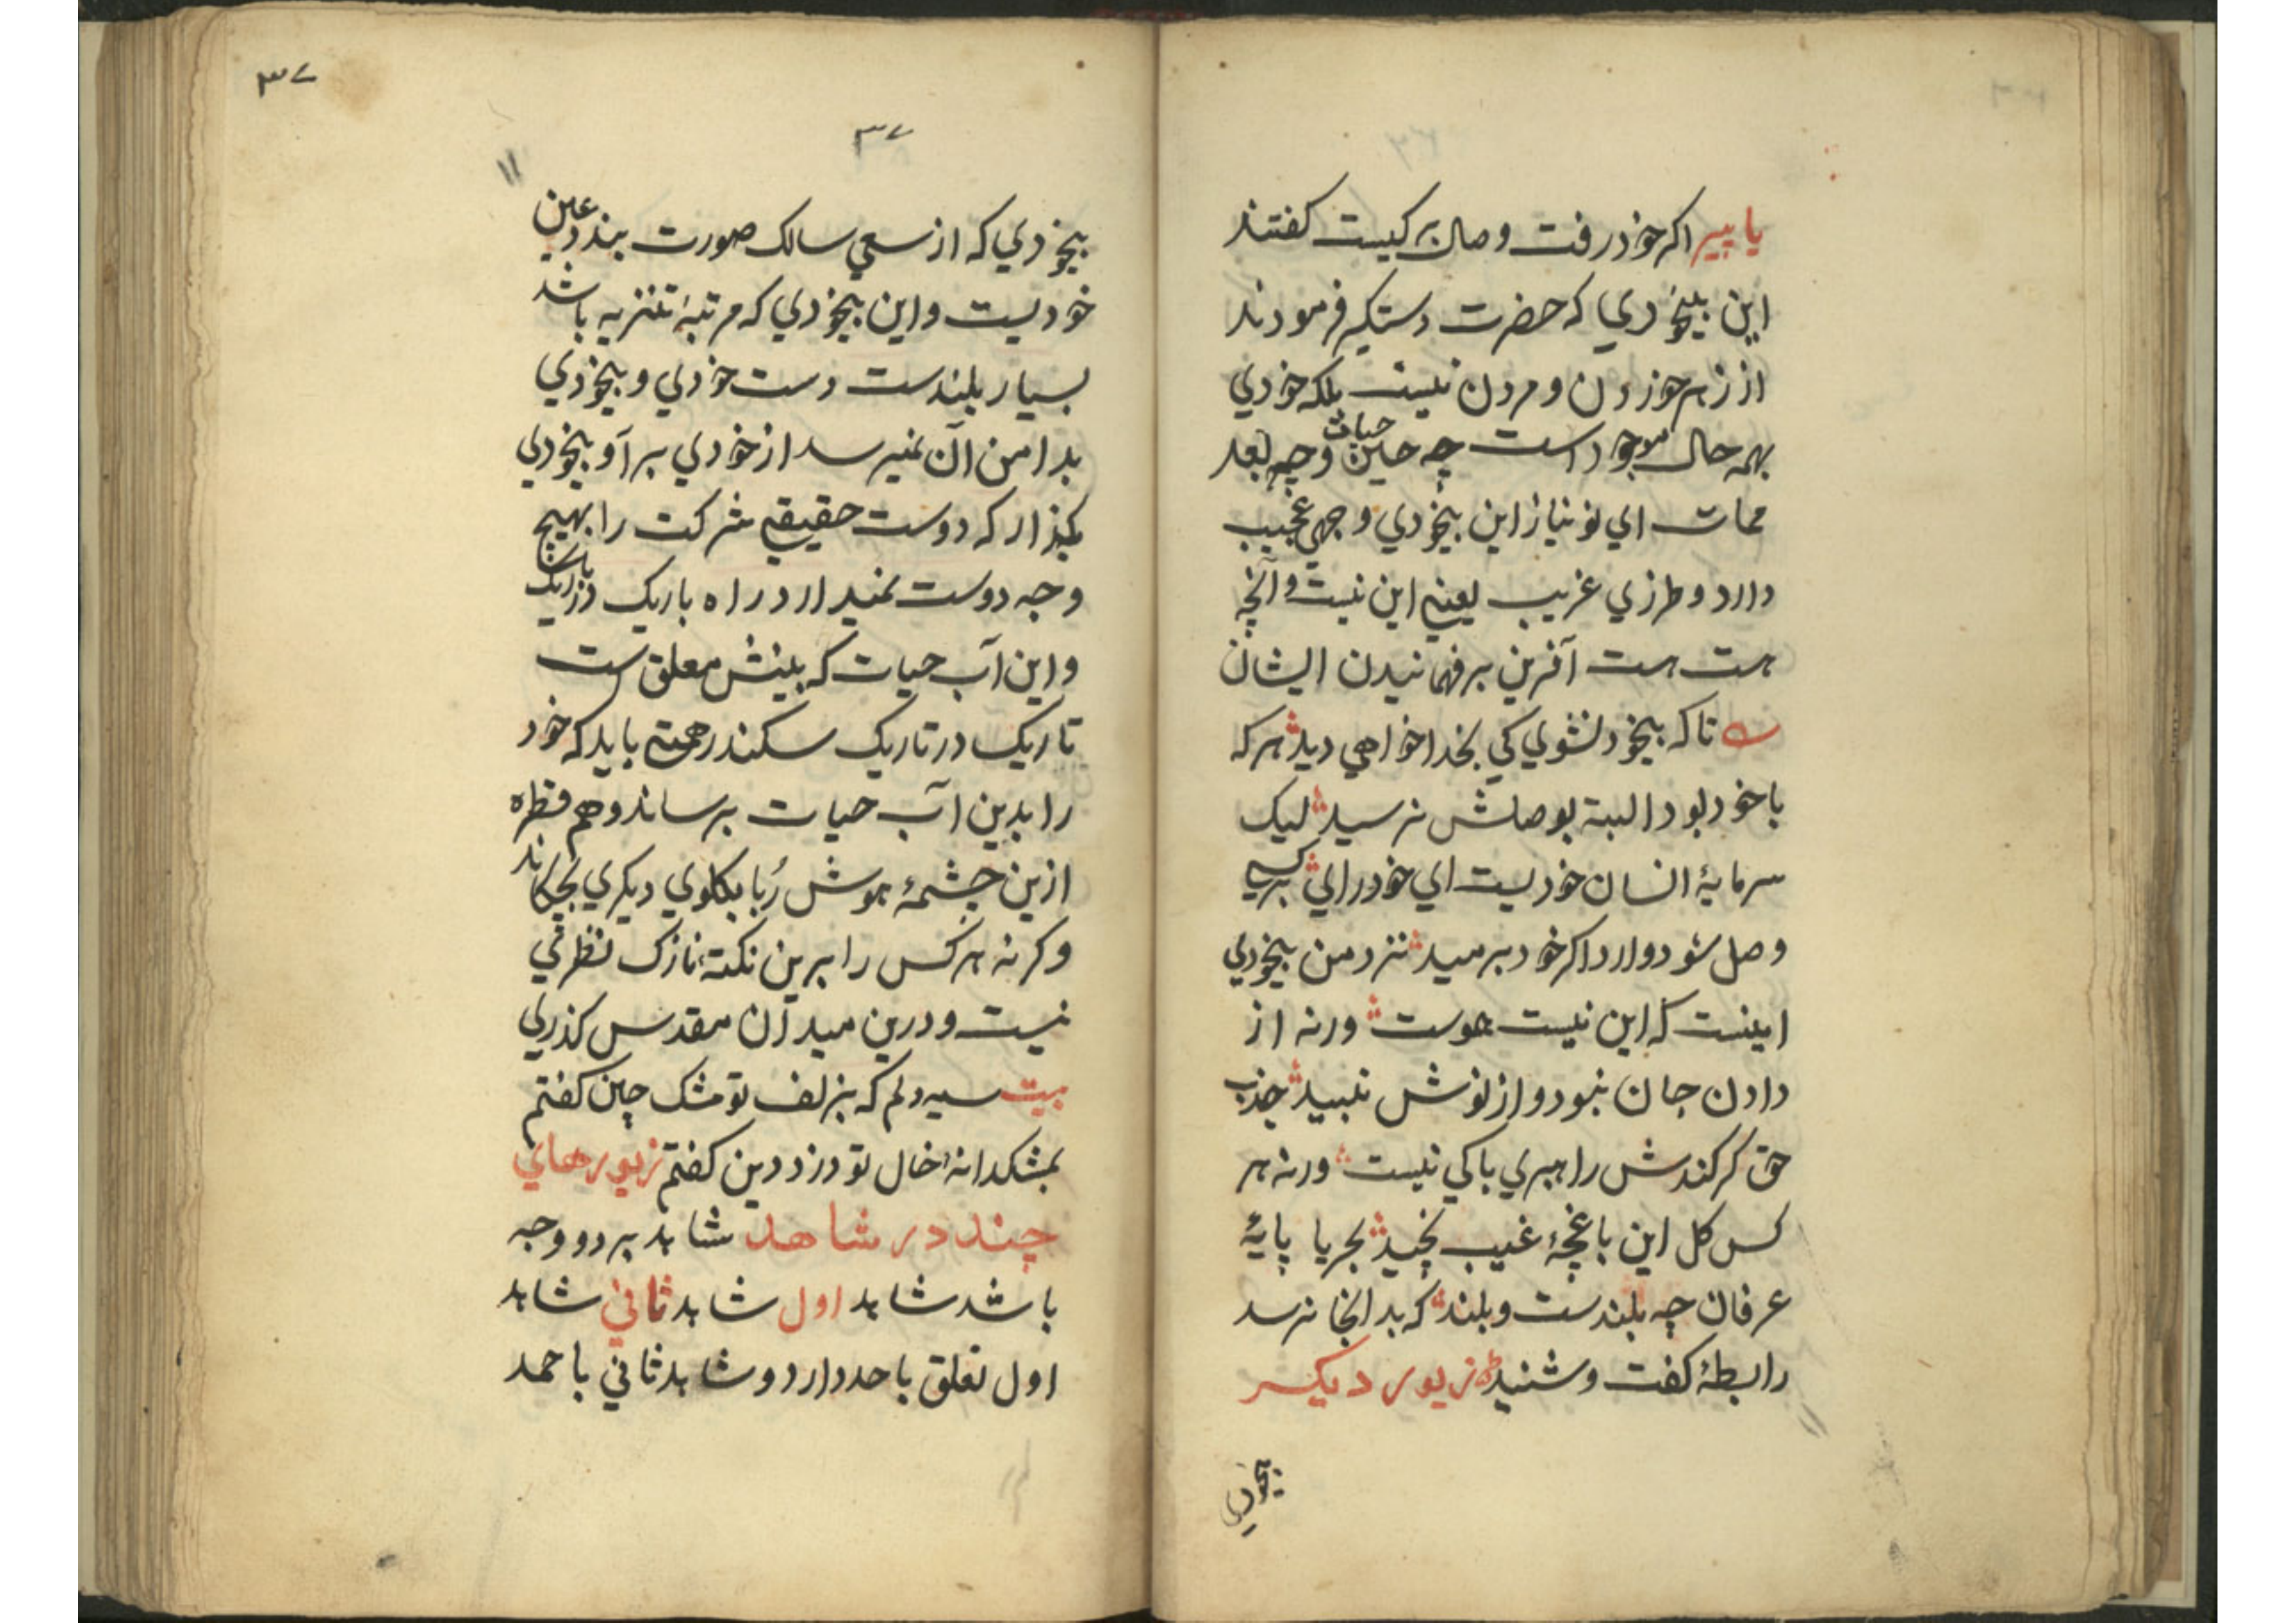 یا پیر اکر خود رفت وصال بر کیست کفتند
این بیخودي که حضرت دستکیر فرمودند
از زهر خوردن و مردن نیست بلکه خودي
بهمه حال موجود است چه حین حیات و چه بعد
ممات اي نو نیاز این بیخودي وجهي عجیب
دارد و طرزي غریب یعني این نیست و آنچه
هست هست آفرین بر فهمانیدن ایشان
تا که بیخود نشوي کي بخدا خواهي دید هر که
باخود بود البته بوصلش نرسید لیک
سرمایۀ انسان خودیست اي خود راي بر کسي
وصل شود وارد اکر خود برمید نزد من بیخودي
اینست که این نیست هوست ورنه از
دادن جان نبود و از نوش نبید جذب
حق کر کندش راهبري باکي نیست ورنه هر
کس کل این باغچۀ غیب نچید بحریا پایۀ
عرفان چه بلندست و بلند که بدانجا نرسد
رابطۀ کفت و شنید زیور دیکر
بیخودي
٣٧
٣٧
بیخودي که از سعي سالک صورت بندد عین
خودیست و این بیخودي که مرتبۀ تنزیه باشد
بسیار بلندست دست خودي و بیخودي
بدامن آن نمیرسد از خودي برآ و بیخودي
بکذار که دوست حقیقي شرکت را بهیچ
وجه دوست نمیدارد راه باریک در باریک
و این آب حیات که بینش معلق ست
تاریک در تاریک سکندر همتي باید که خود
را بدین آب حیات برساند و هم قطره
ازین چشمۀ هوش رُبا بکلوي دیکري بچکاند
وکرنه هر کس را برین نکتۀ نازک نظري
نیست و درین میدان مقدس کذري
بیت سیه دلم که بزلف تو مشک چین کفتم
بمشکدانۀ خال تو دزد دین کفتم زیورهاي
چند در شاهد شاهد بر دو وجه
باشد شاهد اول شاهد ثاني شاهد
اول تعلق باحد دارد و شاهد ثاني باحمد